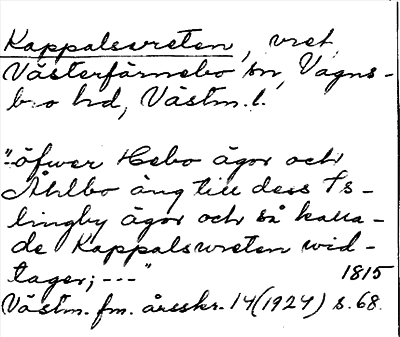 Kappalswreten, vret,
Västerfärnebo sn, Vagns-
bro hd, Västm. l.
"--öfwer Hebo ägor och
Åhlbo äng till dess Is-
lingby ägor och så kalla-
de Kappalswreten wid-
tager; ---"
1815
Västm. fm. årsskr. 14 (1924) s. 68.